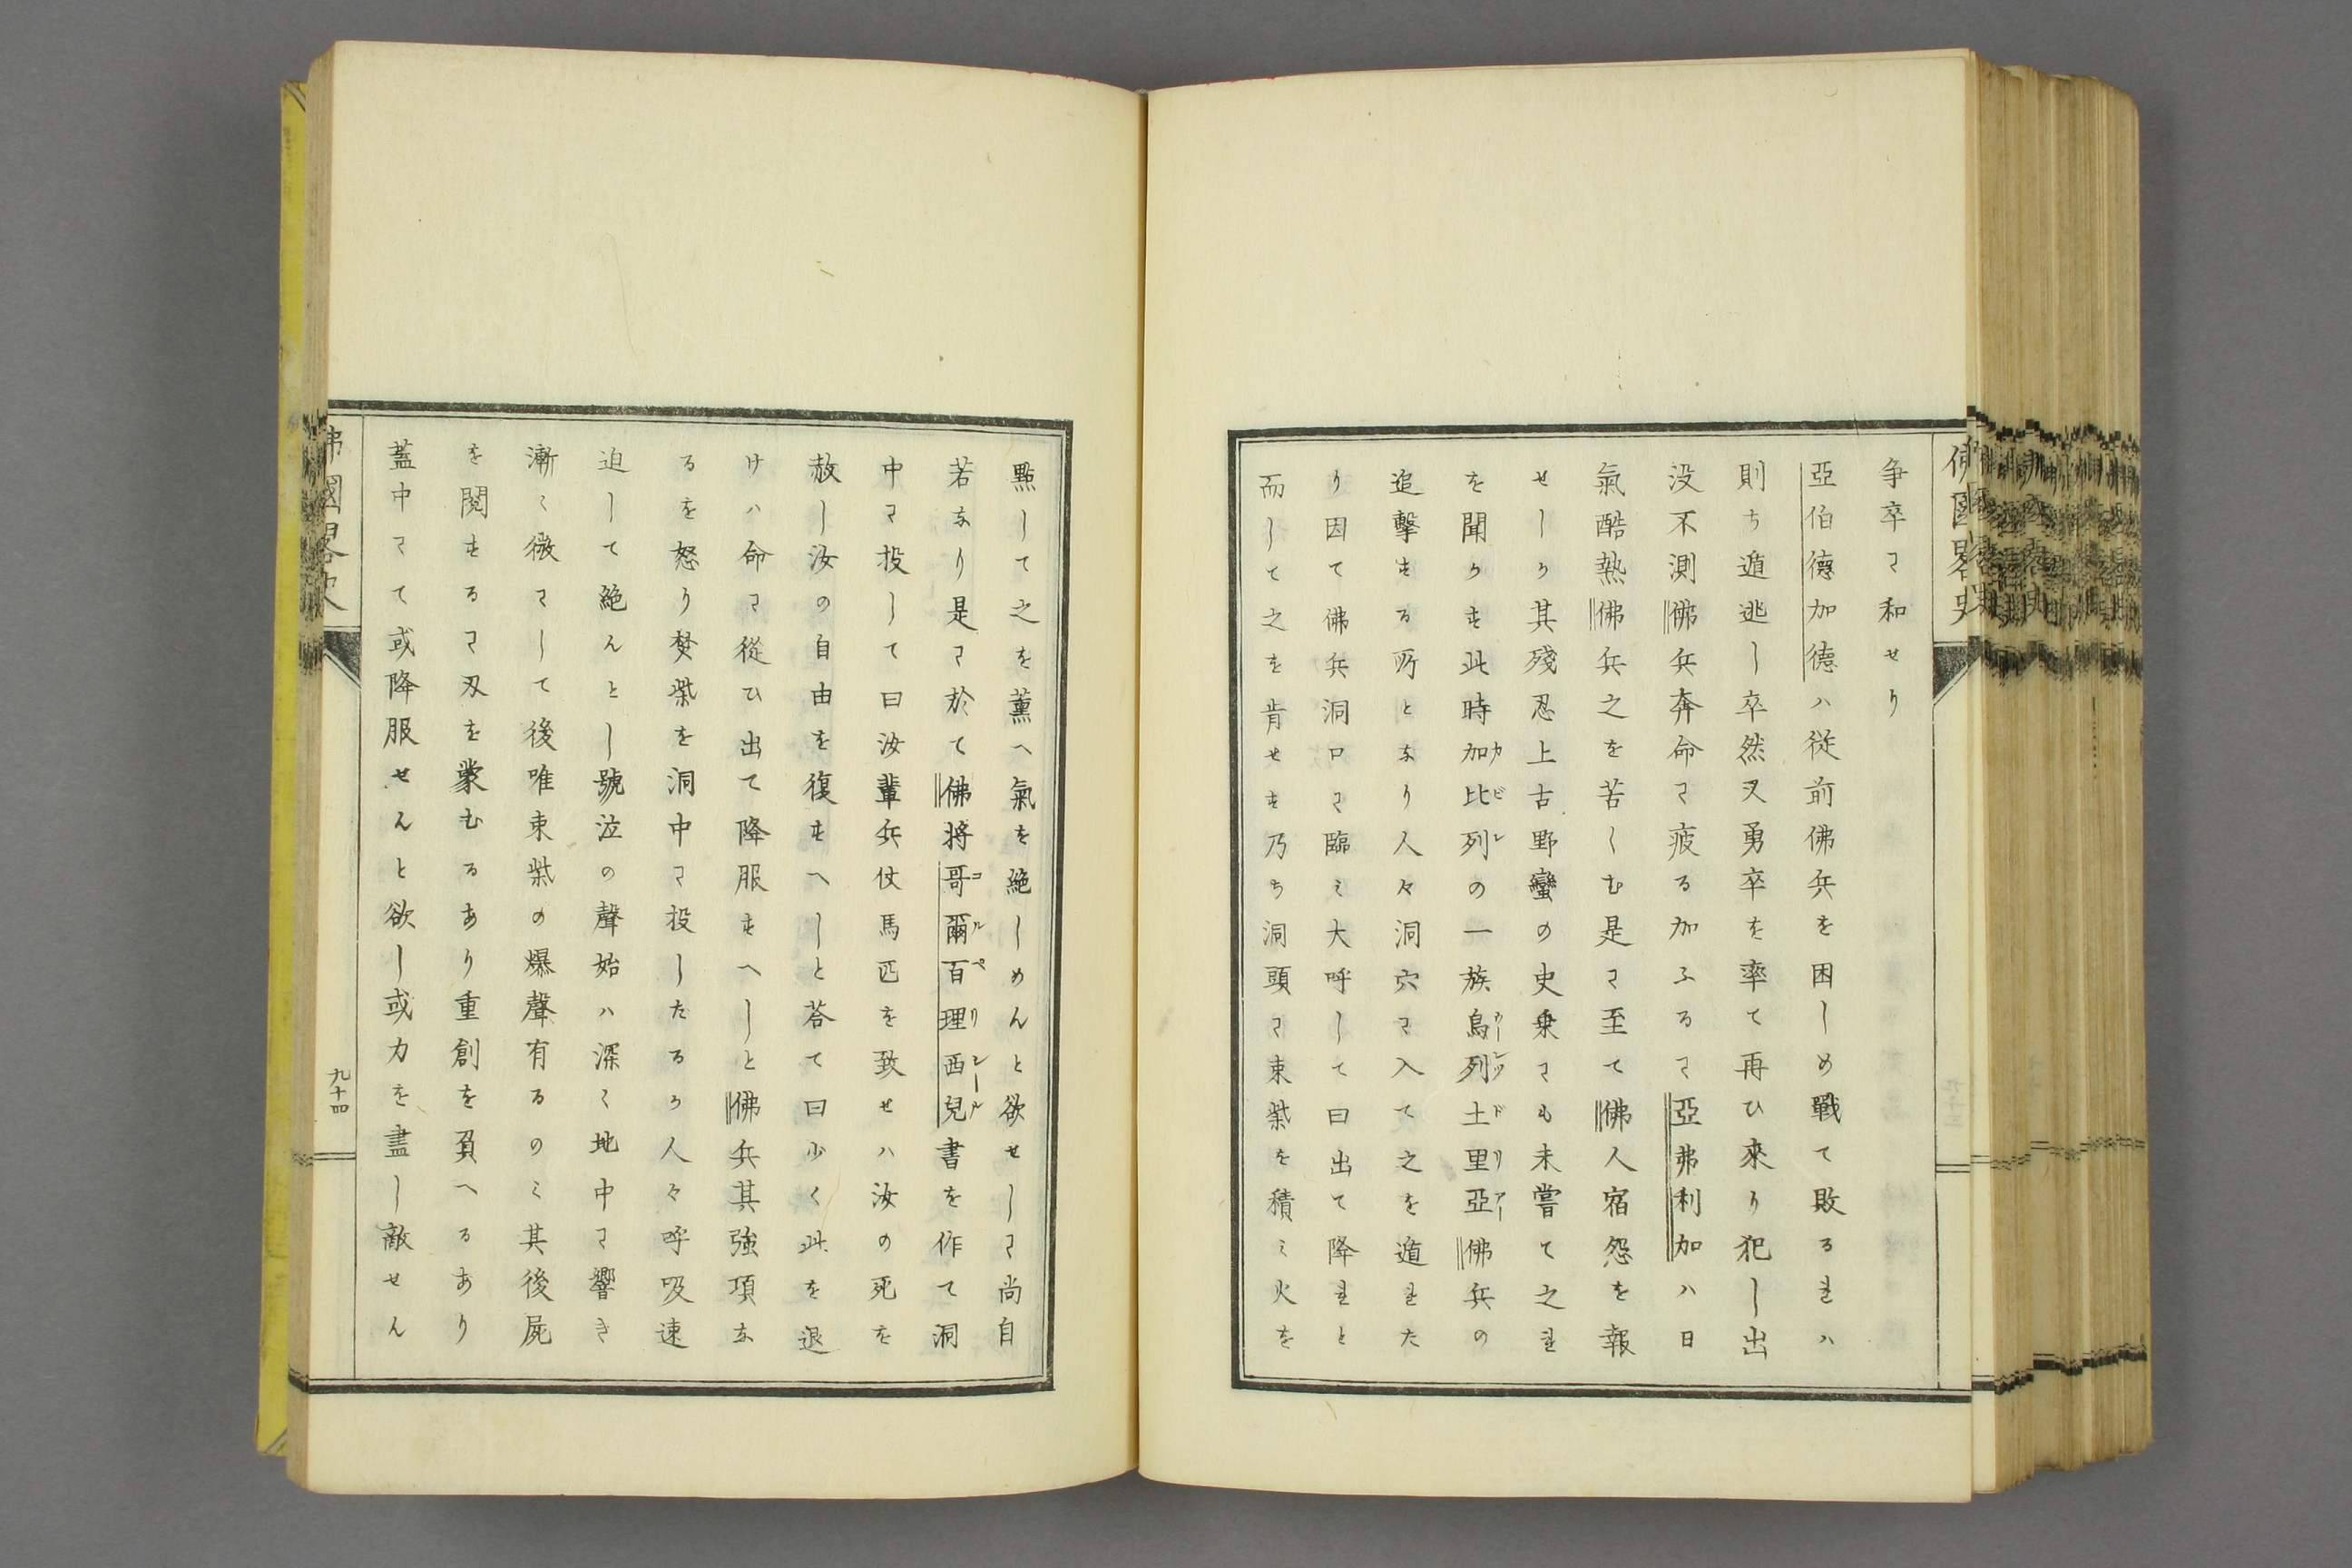 佛國畧史
争卒ニ和せり
亞伯德加德ハ從前佛兵を困しめ戰て敗るれハ
則ち遁逃し卒然又勇卒を率て再ひ來り犯し出
没不測佛兵奔命ニ疲る加ふるニ亞弗利加ハ日
氣酷熱佛兵之を苦しむ是ニ至て佛人宿怨を報
せしか其殘忍上古野蠻の史乗ニも未嘗て之れ
を聞かす此時加比列の一族烏列土里亞佛兵の
カビレ
ドリアー
追擊する所となり人々洞穴ニ入て之を遁れた
り因て佛兵洞口ニ臨ミ大呼して曰出て降れと
而して之を肯せす乃ち洞頭ニ束柴を積ミ火を
點して之を薫へ氣を絶しめんと欲せしニ尚自
若なり是ニ於て佛将哥爾百理西兒書を作て洞
コルペリシール
中ニ投して曰汝輩兵仗馬匹を致せハ汝の死を
赦し汝の自由を復すへしと荅て曰少く此を退
けハ命ニ從ひ出て降服すへしと佛兵其強項な
るを怒り焚柴を洞中ニ投したるか人々呼吸速
迫して絶んとし號泣の聲始ハ深く地中ニ響き
漸く微ニして後唯束柴の爆聲有るのミ其後屍
を閲するニ刄を蒙むるあり重創を負へるあり
蓋中ニて或降服せんと欲し或力を盡し敵せん
佛國畧史
九十四